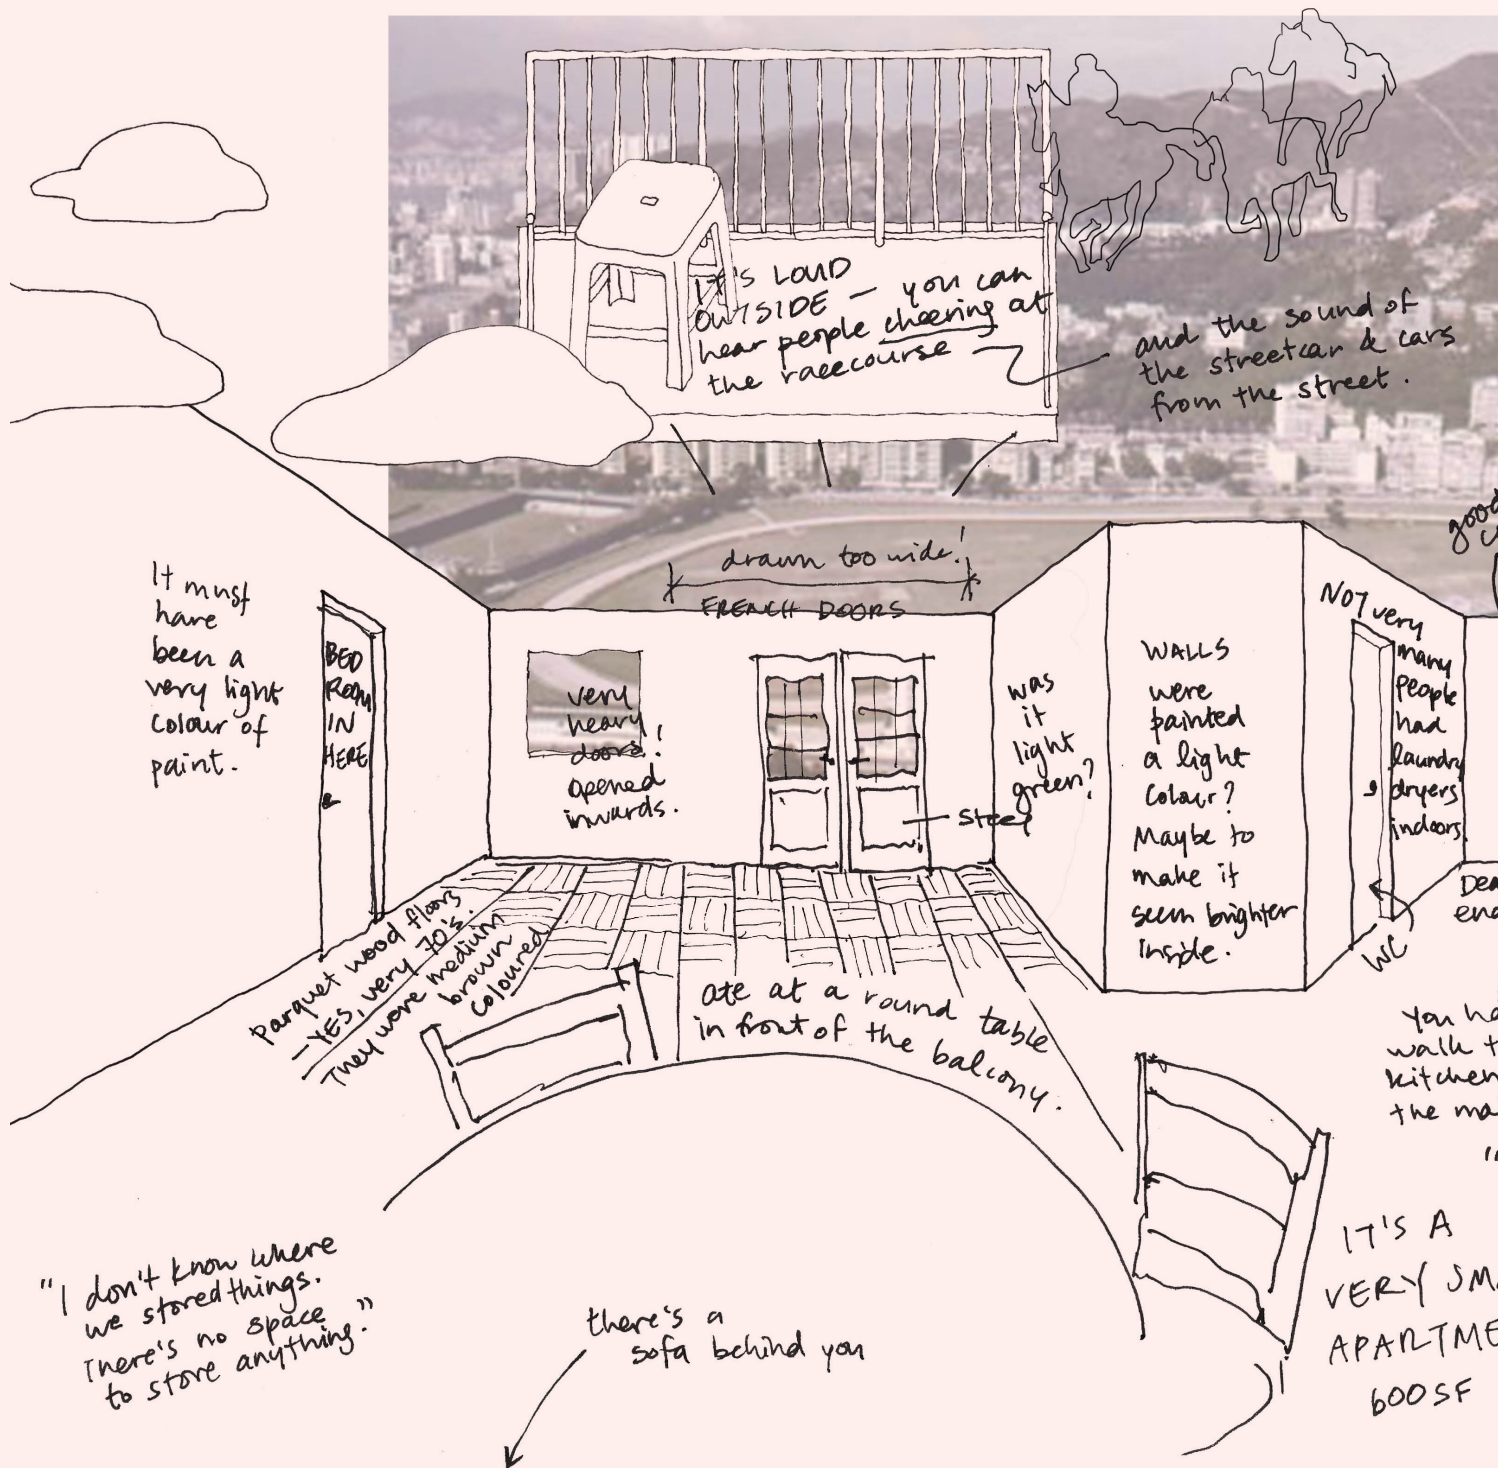 IT'S LOUD
OUTSIDE — you can
hear people cheering at
the racecourse
and the sound of
the streetcar & cars
from the street.
good
drawn too wide!
FRENCH DOORS
It must
have
been a
very light
colour of
paint.
BED
ROOM
IN
HERE
very
heavy
doors!
opened
inwards.
steel
was
it
light
green?
WALLS
were
painted
a light
colour?
Maybe to
make it
seem brighter
inside.
NOT very
many
people
had
laundry
dryers
indoors
WC
parquet wood floors
— YES, very 70's.
They were medium
brown
coloured
ate at a round table
in front of the balcony.
walk
kitchen
the
"I don't know where
we stored things.
There's no space
to store anything."
there's a
sofa behind you
IT'S A
VERY
600SF